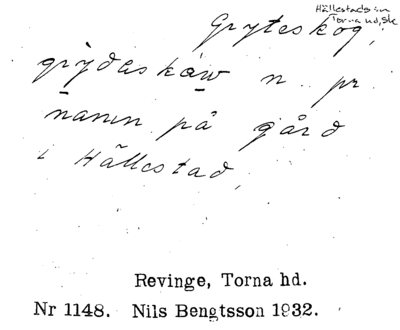 Hällestads sn
Torna hd, Sk
Gryteskog,
grỳdaskàw n. pr.
namn på gård
i Hällestad,
Revinge, Torna hd.
Nr 1148. Nils Bengtsson 1932.